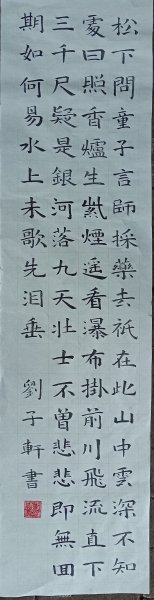 松下問童子言師採藥去祇在此山中雲深不知
處曰照香爐生紫煙遥看瀑布掛前川飛流直下
三千尺疑是銀河落九天壯士不曾悲悲即無回
期如何易水上未歌先泪垂 劉子軒書